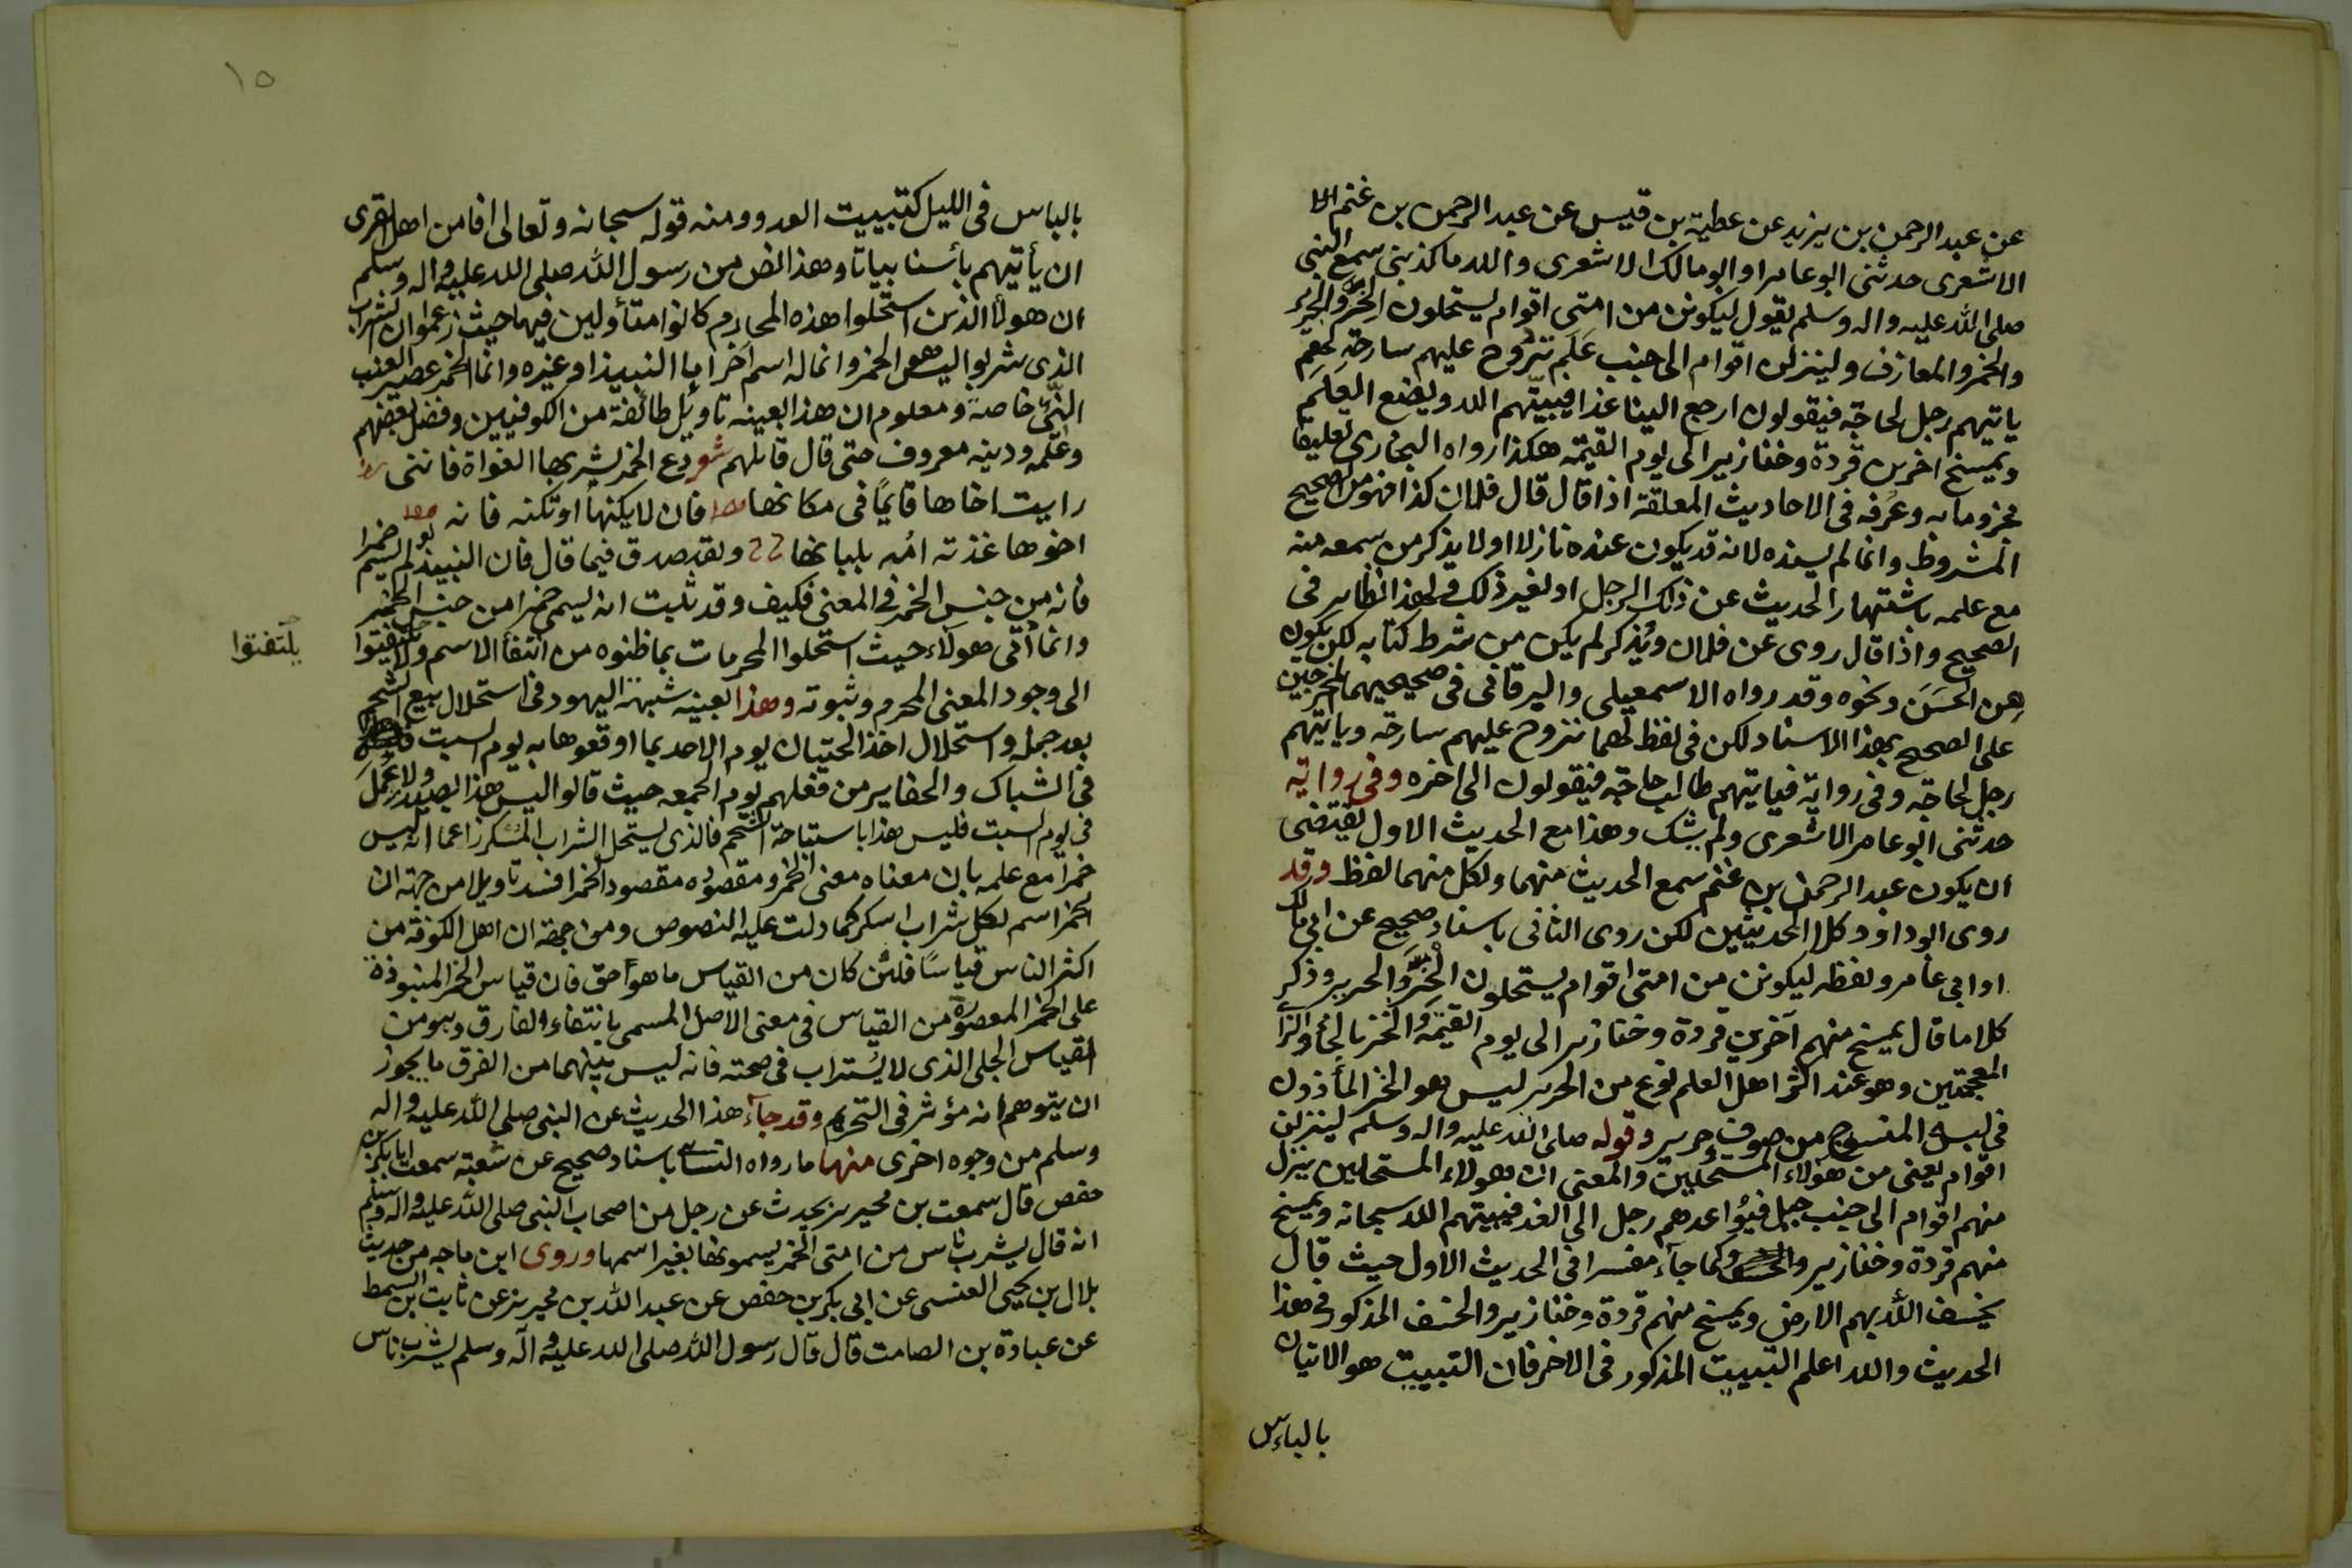 عن عبد الرحمن بن يزيد عن عطية بن قيس عن عبد الرحمن بن غنم
الاشعرى حدثنى ابو عامر او ابو مالك الاشعرى والله ما كذبنى سمع النبى
صلى الله عليه واله وسلم يقول ليكونن من امتى اقوام يستحلون الخز والحرير
والخمر والمعازف ولينزلن اقوام الى جنب علم تروح عليهم سارحة لهم
ياتيهم رجل لحاجة فيقولون ارجع الينا غدا فيبيتهم الله ويضع العلم
ويمسخ اخرين قردة وخنازير الى يوم القيمة هكذا رواه البخارى تعليقا
مجزوما به وعرفه فى الاحاديث المعلقة اذا قال قال فلان كذا فهو من الصحيح
المشروط وانما لم يسنده لانه قد يكون عنده نازلا او لا يذكر من سمعه منه
مع علمه باشتهار الحديث عن ذلك الرجل او لغير ذلك ولهذا نظاير فى
الصحيح واذا قال روى عن فلان ويذكر لم يكن من شرط كتابه لكن يكون
من الحسن ونحوه وقد رواه الاسمعيلى والبرقانى فى صحيحيهما المخرجين
على الصحيح بهذا الاسناد لكن فى لفظ لهما تروح عليهم سارحة وياتيهم
رجل لحاجة وفى رواية فياتيهم طالب حاجة فيقولون الى اخره وفى رواية
حدثنى ابو عامر الاشعرى ولم يشك وهذا مع الحديث الاول يقتضى
ان يكون عبد الرحمن بن غنم سمع الحديث منهما ولكل منهما لفظ وقد
روى ابو داود كلا الحديثين لكن روى الثانى باسناد صحيح عن ابى مالك
او ابى عامر ولفظه ليكونن من امتى اقوام يستحلون الخز والحرير وذكر
كلاما قال يمسخ منهم آخرين قردة وخنازير الى يوم القيمة والخز بالخاء والزاء
المعجمتين وهو عند اكثر اهل العلم نوع من الحرير ليس هو الخز المأذون
فى لبسه المنسوج من صوف وحرير وقوله صلى الله عليه واله وسلم لينزلن
اقوام يعنى من هؤلاء المستحلين والمعنى ان هولاء المستحلين ينزل
منهم اقوام الى جنب جبل فيواعدهم رجل الى الغد فيبيتهم الله سبحانه ويمسخ
منهم قردة وخنازير وكما جاء مفسرا فى الحديث الاول حيث قال
يخسف الله بهم الارض ويمسخ منهم قردة وخنازير والخسف المذكور فى هذا
الحديث والله اعلم التبييت المذكور فى الاخر فان التبييت هو الاتيان
بالباس
١٥
بالباس فى الليل كتبييت العدو ومنه قوله سبحانه وتعالى افامن اهل القرى
ان يأتيهم بأسنا بياتا وهذا نص من رسول الله صلى الله عليه واله وسلم
ان هولا الذين استحلوا هذه المحارم كانوا متأولين فيها حيث زعموا ان الشراب
الذى شربوا ليس هو الخمر وانما له اسم آخر اما النبيذ او غيره وانما الخمر عصير العنب
النىّ خاصة ومعلوم ان هذا بعينه تاويل طائفة من الكوفيين وفضل بعضهم
وعلمه ودينه معروف حتى قال قائلهم شعر دع الخمر يشربها الغواة فاننى
رايت اخاها قايمًا فى مكانها فان لا يكنها او تكنه فانه
اخوها غذته امه بلبانها ولقد صدق فيما قال فان النبيذ لو لم يسم خمرا
فانه من جنس الخمر فى المعنى فكيف وقد ثبت انه يسمى خمرا من جنس الخمر
وانما أتى هولاء حيث استحلوا المحرمات بما ظنوه من انتفأ الاسم ولم يلتفتوا
يلتفتوا
الى وجود المعنى المحرم وثبوته وهذا بعينه شبهة اليهود فى استحلال بيع الشحم
بعد جمله واستحلال اخذ الحيتان يوم الاحد بما اوقعوها به يوم السبت
فى الشباك والحفاير من فعلهم يوم الجمعه حيث قالوا ليس هذا بصيد ولا عمل
فى يوم السبت فليس هذا باستباحة الشحم فالذى يستحل الشراب المسكر زاعما انه ليس
خمرا مع علمه بان معناه معنى الخمر ومقصوده مقصود الخمر افسد تاويلا من جهة ان
الخمر اسم لكل شراب اسكر كما دلت عليه النصوص ومن جهة ان اهل الكوفة من
اكثر الناس قياسًا فلئن كان من القياس ما هو احق فان قياس الخمر المنبوذة
على الخمر المعصورة من القياس فى معنى الاصل المسمى بانتفاء الفارق وهو من
القياس الجلى الذى لا يستراب فى صحته فانه ليس بينهما من الفرق ما يجوز
ان يتوهم انه مؤثر فى التحريم وقد جآء هذا الحديث عن النبى صلى الله عليه واله
وسلم من وجوه اخرى منها ما رواه النسائى باسناد صحيح عن شعبة سمعت ابا بكر بن
حفص قال سمعت بن محيريز يحدث عن رجل من اصحاب النبى صلى الله عليه واله وسلم
انه قال يشرب ناس من امتى الخمر يسمونها بغير اسمها وروى ابن ماجه من حديث
بلال بن يحيى العنسى عن ابى بكر بن حفص عن عبد الله بن محيريز عن ثابت بن السمط
عن عبادة بن الصامت قال قال رسول الله صلى الله عليه وآله وسلم يشرب ناس